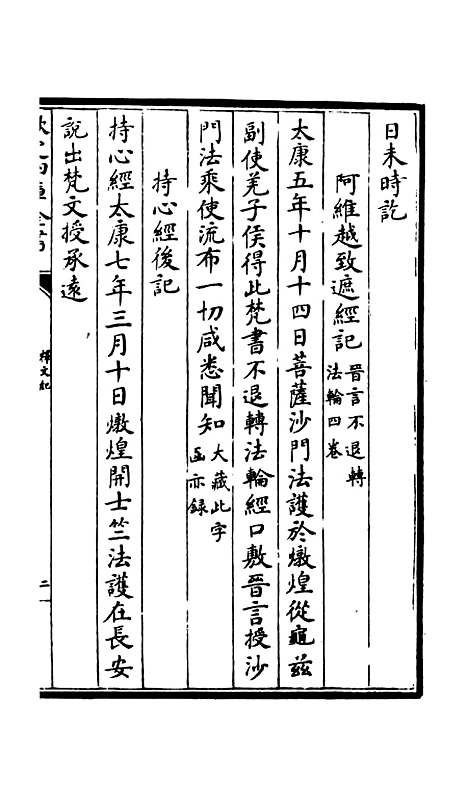 日未時訖
阿維越致遮經記 晉言不退轉
法輪四卷
太康五年十月十四日菩薩沙門法護於燉煌從龜茲
副使羌子侯得此梵書不退轉法輪經口敷晉言授沙
門法乘使流布一切咸悉聞知 大藏此字
函亦録
持心經後記
持心經太康七年三月十日燉煌開士竺法護在長安
說出梵文授承遠
欽定四庫全書
釋文紀